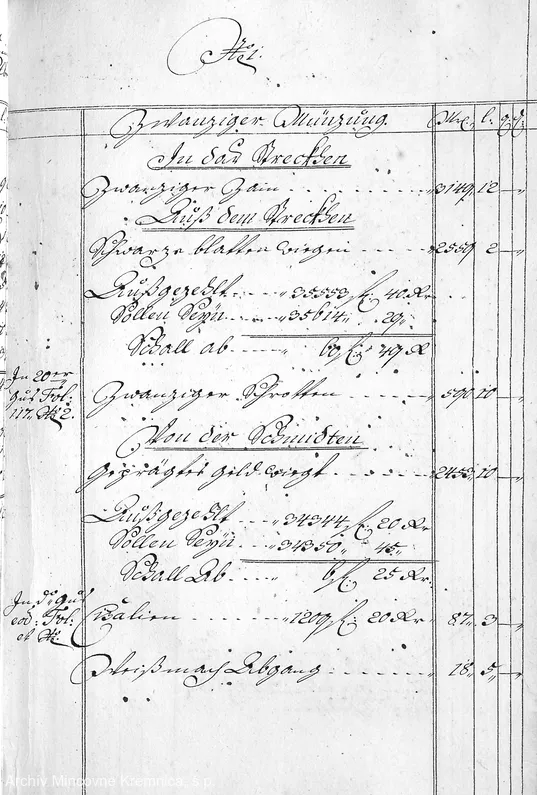 No 1.
Zwanziger Münzung. Mk. l. q. d.
In das Streckhen
Zwanziger Zain 3149 12 —
Auß dem Streckhen
Schwarze blatten wiegen 2559 2 —
Außgezehlt 35553 f: 40 Kr
Sollen Seyn 35614 29
Schall ab 60 f: 49 Kr
In 20er
Zwanziger Schrotten 590 10 —
guß Fol:
117. No 2.
Von der Schmidten
Geprägtes Geld wiegt 2453 10 —
Außgezehlt 34344 f: 20 Kr
Sollen Seyn 34350 45
Schall Ab 6 f: 25 Kr.
In d: guß
eod: Fol:
et No
Cisalien 1209 f: 20 Kr 87 3 —
Weißmach Abgang 18 5 —
Archív Mincovne Kremnica, š.p.